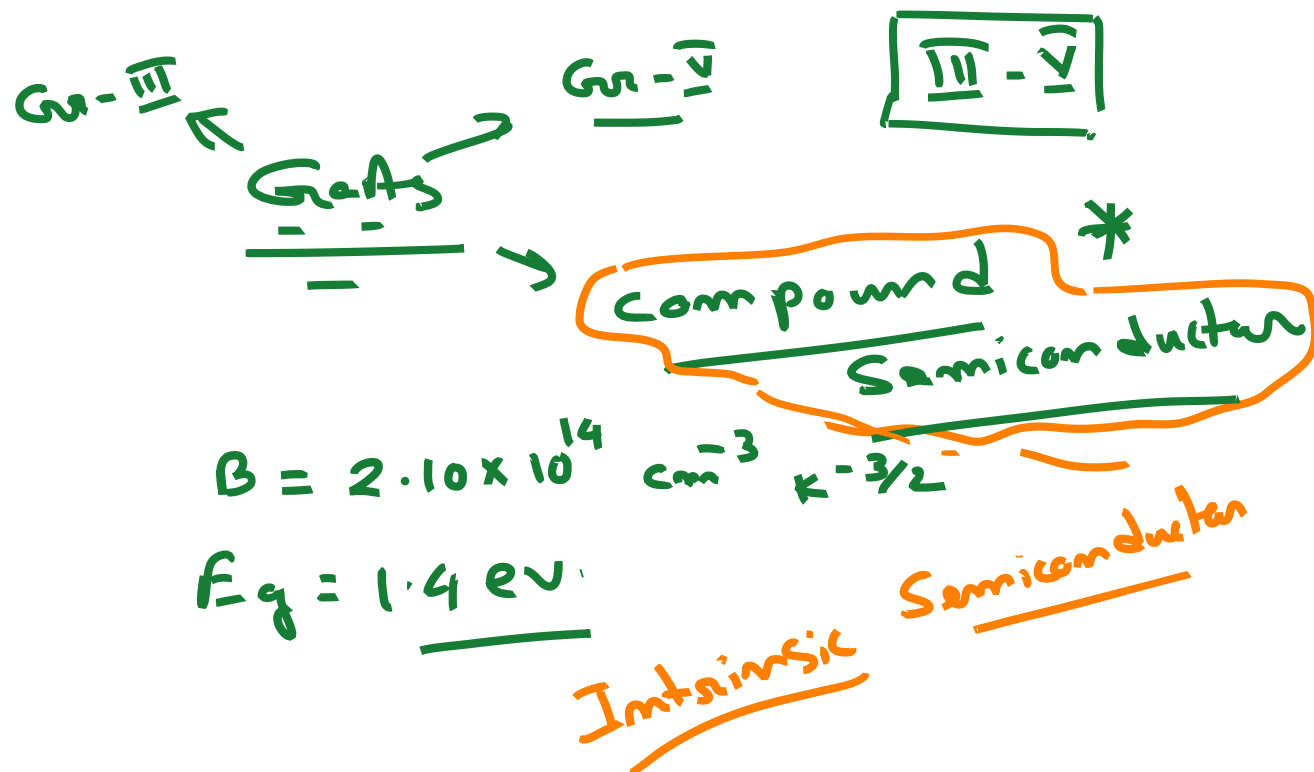 Gr - III
Gr - V
III - V
GaAs
Compound
Semiconductor
*
B = 2.10 × 10¹⁴ cm⁻³ K⁻³/²
Eg = 1.4 ev.
Intrinsic Semiconductor